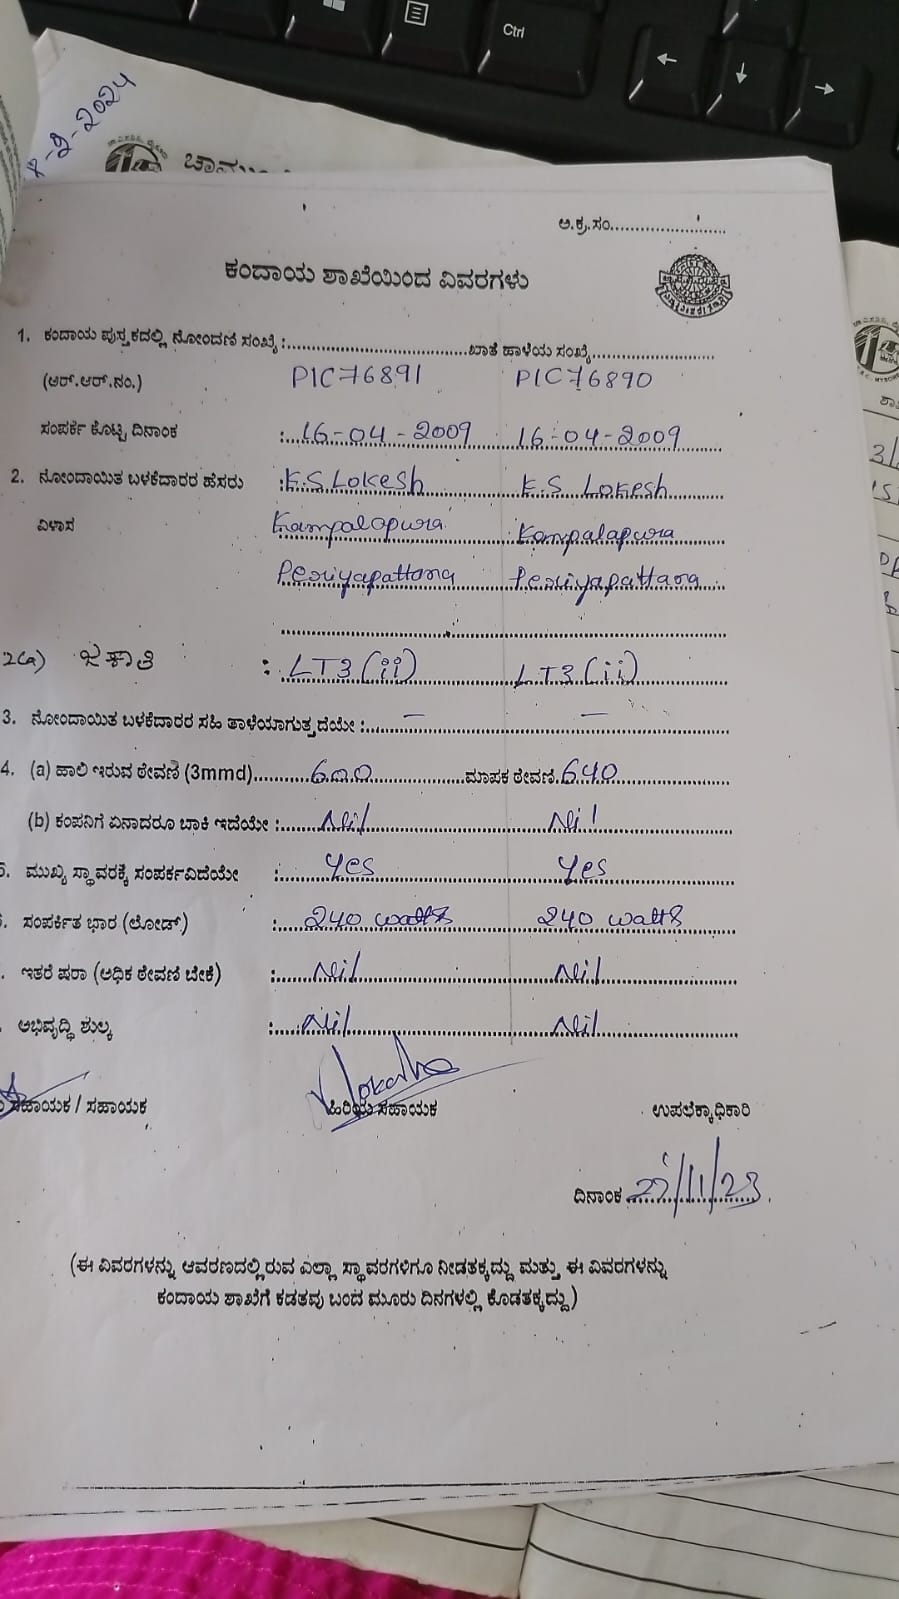 Ctrl
8-2-2024
ಚಾಮುಂ
ಅ.ಕ್ರ.ಸಂ..........................
ಕಂದಾಯ ಶಾಖೆಯಿಂದ ವಿವರಗಳು
1. ಕಂದಾಯ ಪುಸ್ತಕದಲ್ಲಿ ನೋಂದಣಿ ಸಂಖ್ಯೆ :........................................ಖಾತೆ ಹಾಳೆಯ ಸಂಖ್ಯೆ..........................
(ಆರ್.ಆರ್.ನಂ.) PIC76891 PIC76890
ಸಂಪರ್ಕ ಕೊಟ್ಟ ದಿನಾಂಕ : 16-04-2009 16-04-2009
2. ನೋಂದಾಯಿತ ಬಳಕೆದಾರರ ಹೆಸರು : K.S Lokesh K.S Lokesh
ವಿಳಾಸ Kampalapura Kampalapura
Periyapattana Periyapattana
2(a) ಜಕಾತಿ : LT3(ii) LT3(ii)
3. ನೋಂದಾಯಿತ ಬಳಕೆದಾರರ ಸಹಿ ತಾಳೆಯಾಗುತ್ತದೆಯೇ : — —
4. (a) ಹಾಲಿ ಇರುವ ಠೇವಣಿ (3mmd) 600 ಮಾಪಕ ಠೇವಣಿ 640
(b) ಕಂಪನಿಗೆ ಏನಾದರೂ ಬಾಕಿ ಇದೆಯೇ : Nil Nil
5. ಮುಖ್ಯ ಸ್ಥಾವರಕ್ಕೆ ಸಂಪರ್ಕವಿದೆಯೇ : Yes Yes
. ಸಂಪರ್ಕಿತ ಭಾರ (ಲೋಡ್) : 240 watts 240 watts
. ಇತರೆ ಷರಾ (ಅಧಿಕ ಠೇವಣಿ ಬೇಕೆ) : Nil Nil
. ಅಭಿವೃದ್ಧಿ ಶುಲ್ಕ : Nil Nil
ಸಹಾಯಕ / ಸಹಾಯಕ ಹಿರಿಯ ಸಹಾಯಕ ಉಪಲೆಕ್ಕಾಧಿಕಾರಿ
ದಿನಾಂಕ 22/11/23
(ಈ ವಿವರಗಳನ್ನು ಆವರಣದಲ್ಲಿರುವ ಎಲ್ಲಾ ಸ್ಥಾವರಗಳಿಗೂ ನೀಡತಕ್ಕದ್ದು ಮತ್ತು ಈ ವಿವರಗಳನ್ನು
ಕಂದಾಯ ಶಾಖೆಗೆ ಕಡತವು ಬಂದ ಮೂರು ದಿನಗಳಲ್ಲಿ ಕೊಡತಕ್ಕದ್ದು)